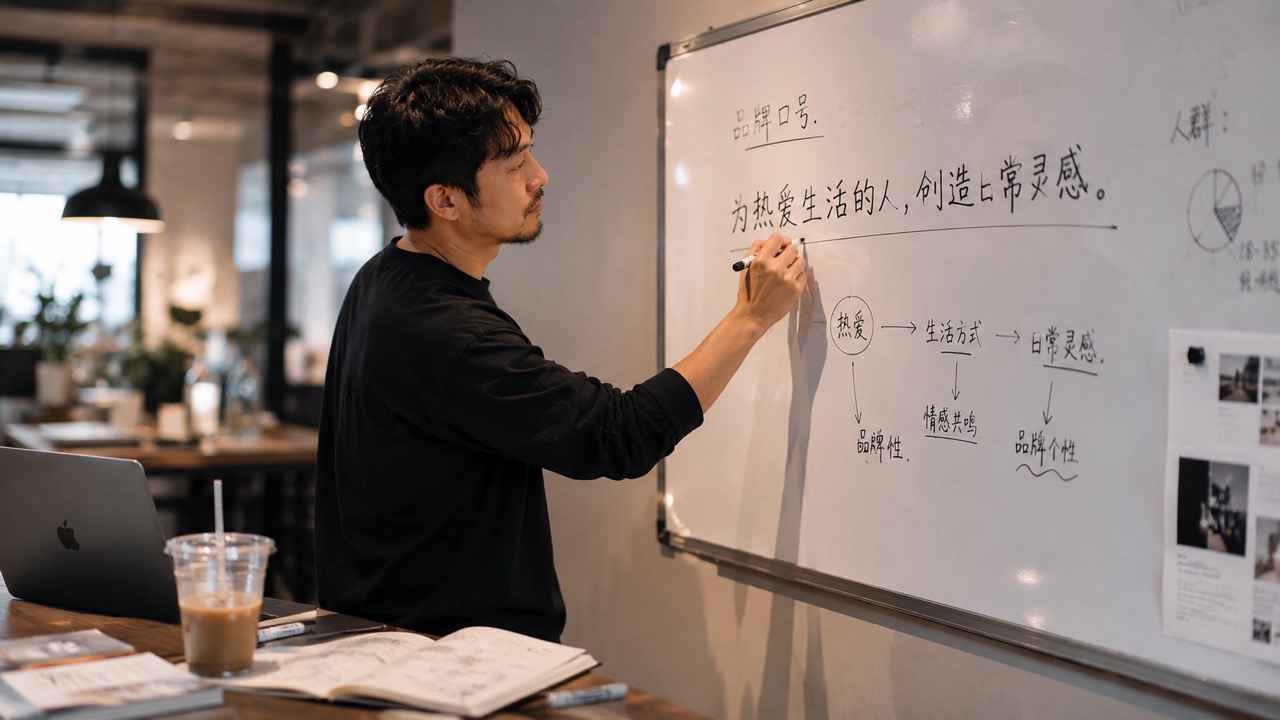 品牌口号.
为热爱生活的人,创造日常灵感。
热爱 → 生活方式 → 日常灵感.
品牌性. 情感共鸣 品牌个性
人群:
18-35